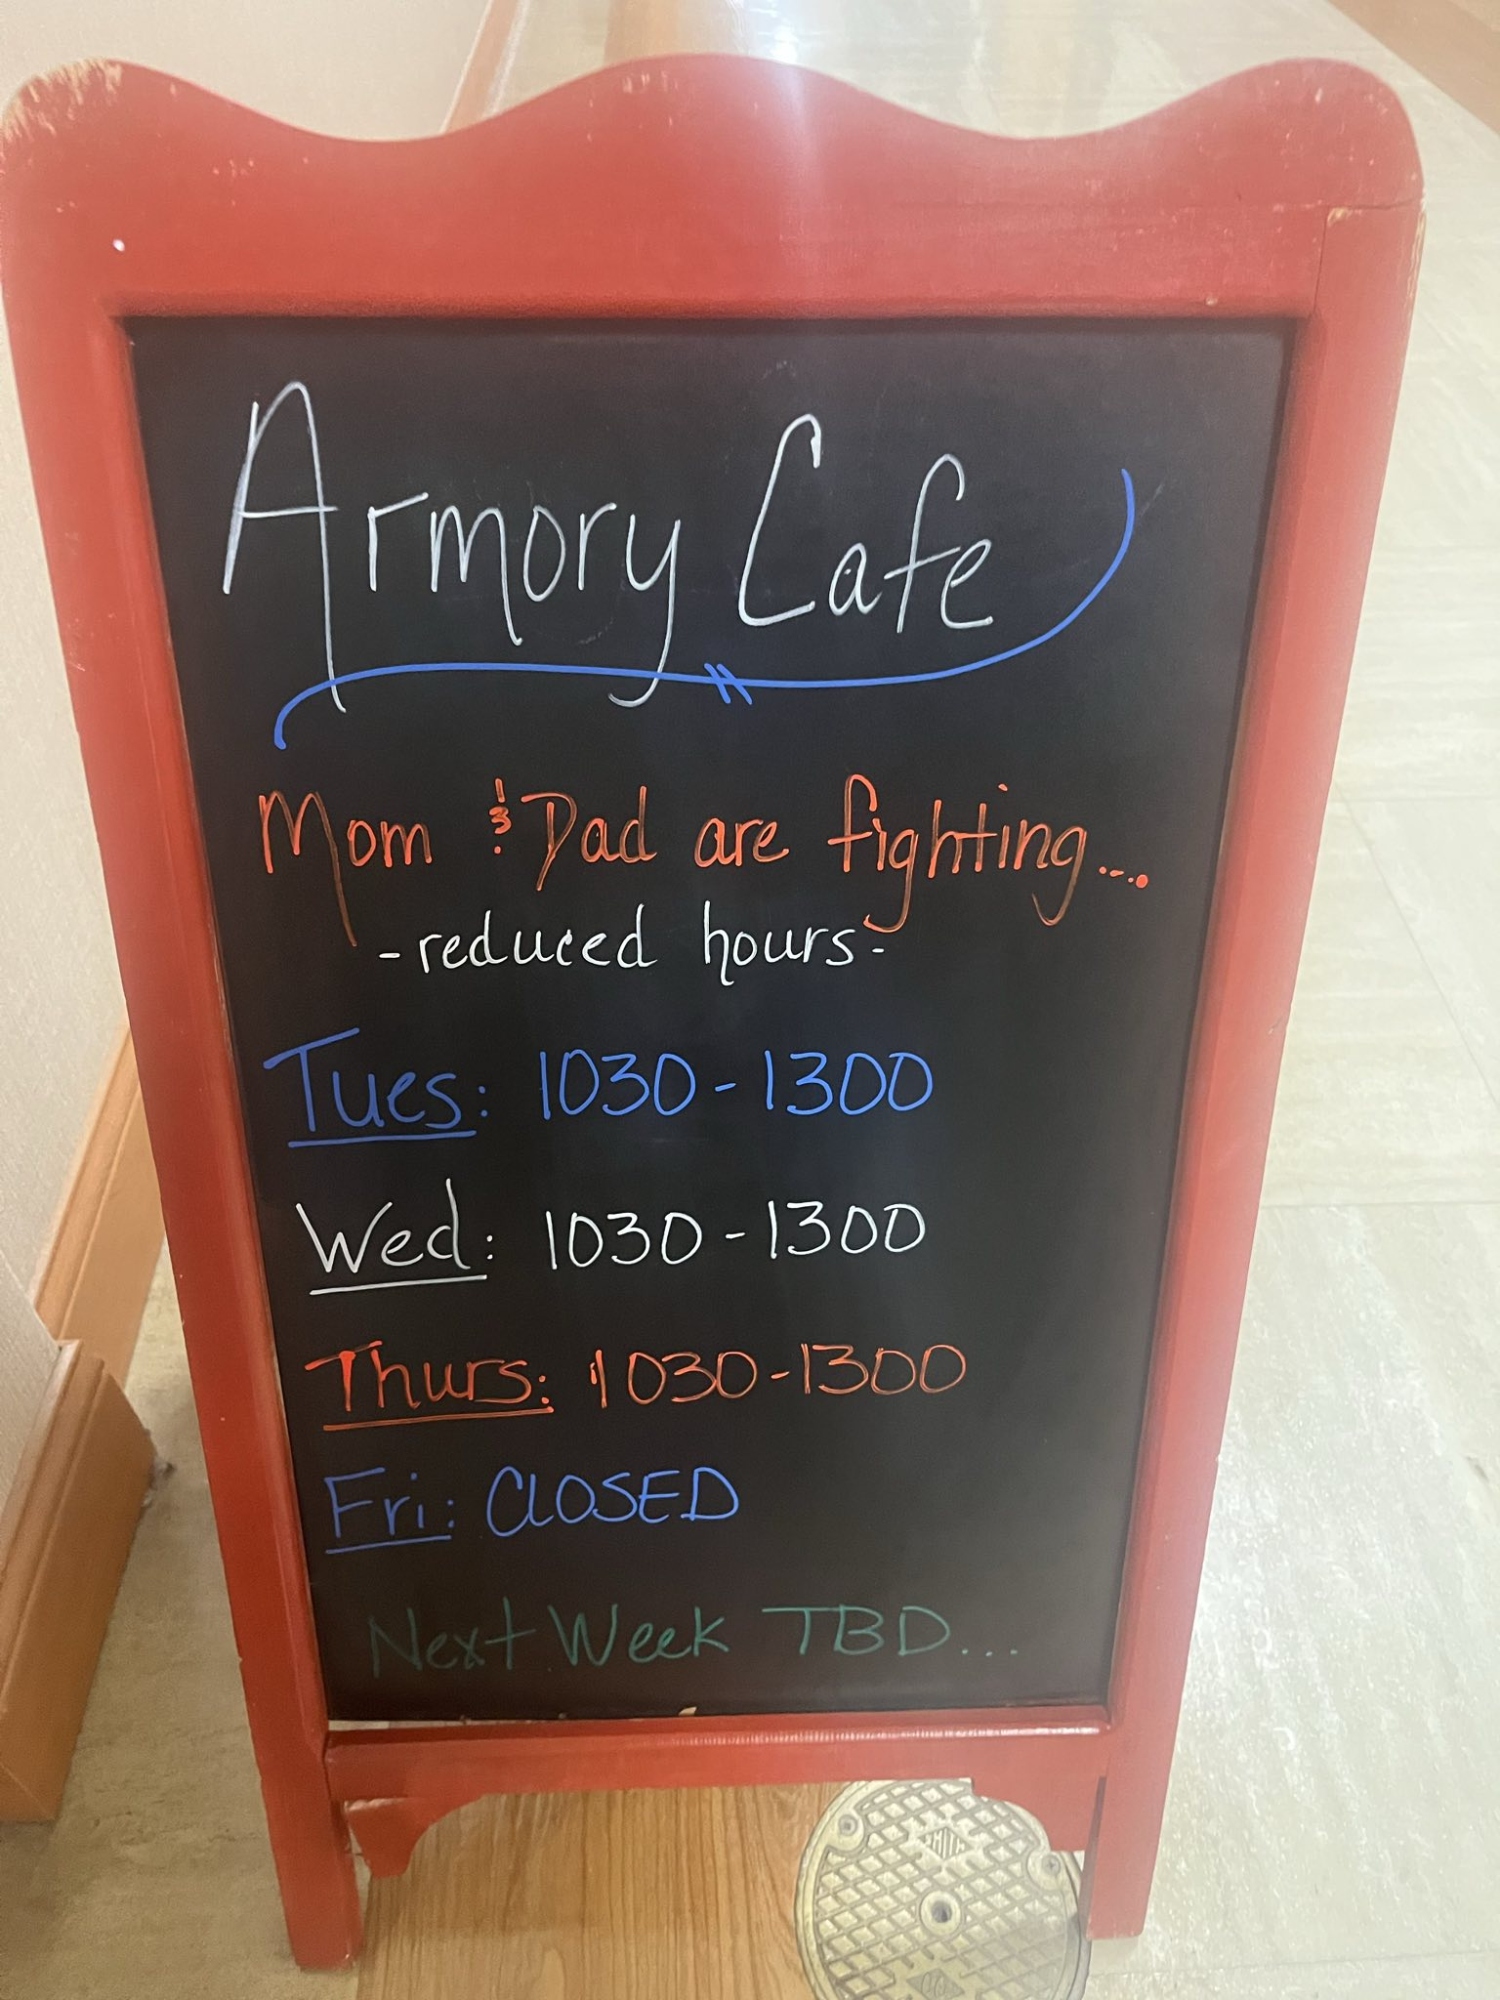 Armory Cafe
Mom & Dad are fighting...
-reduced hours-
Tues: 1030-1300
Wed: 1030-1300
Thurs: 1030-1300
Fri: CLOSED
Next Week TBD...
SMITH